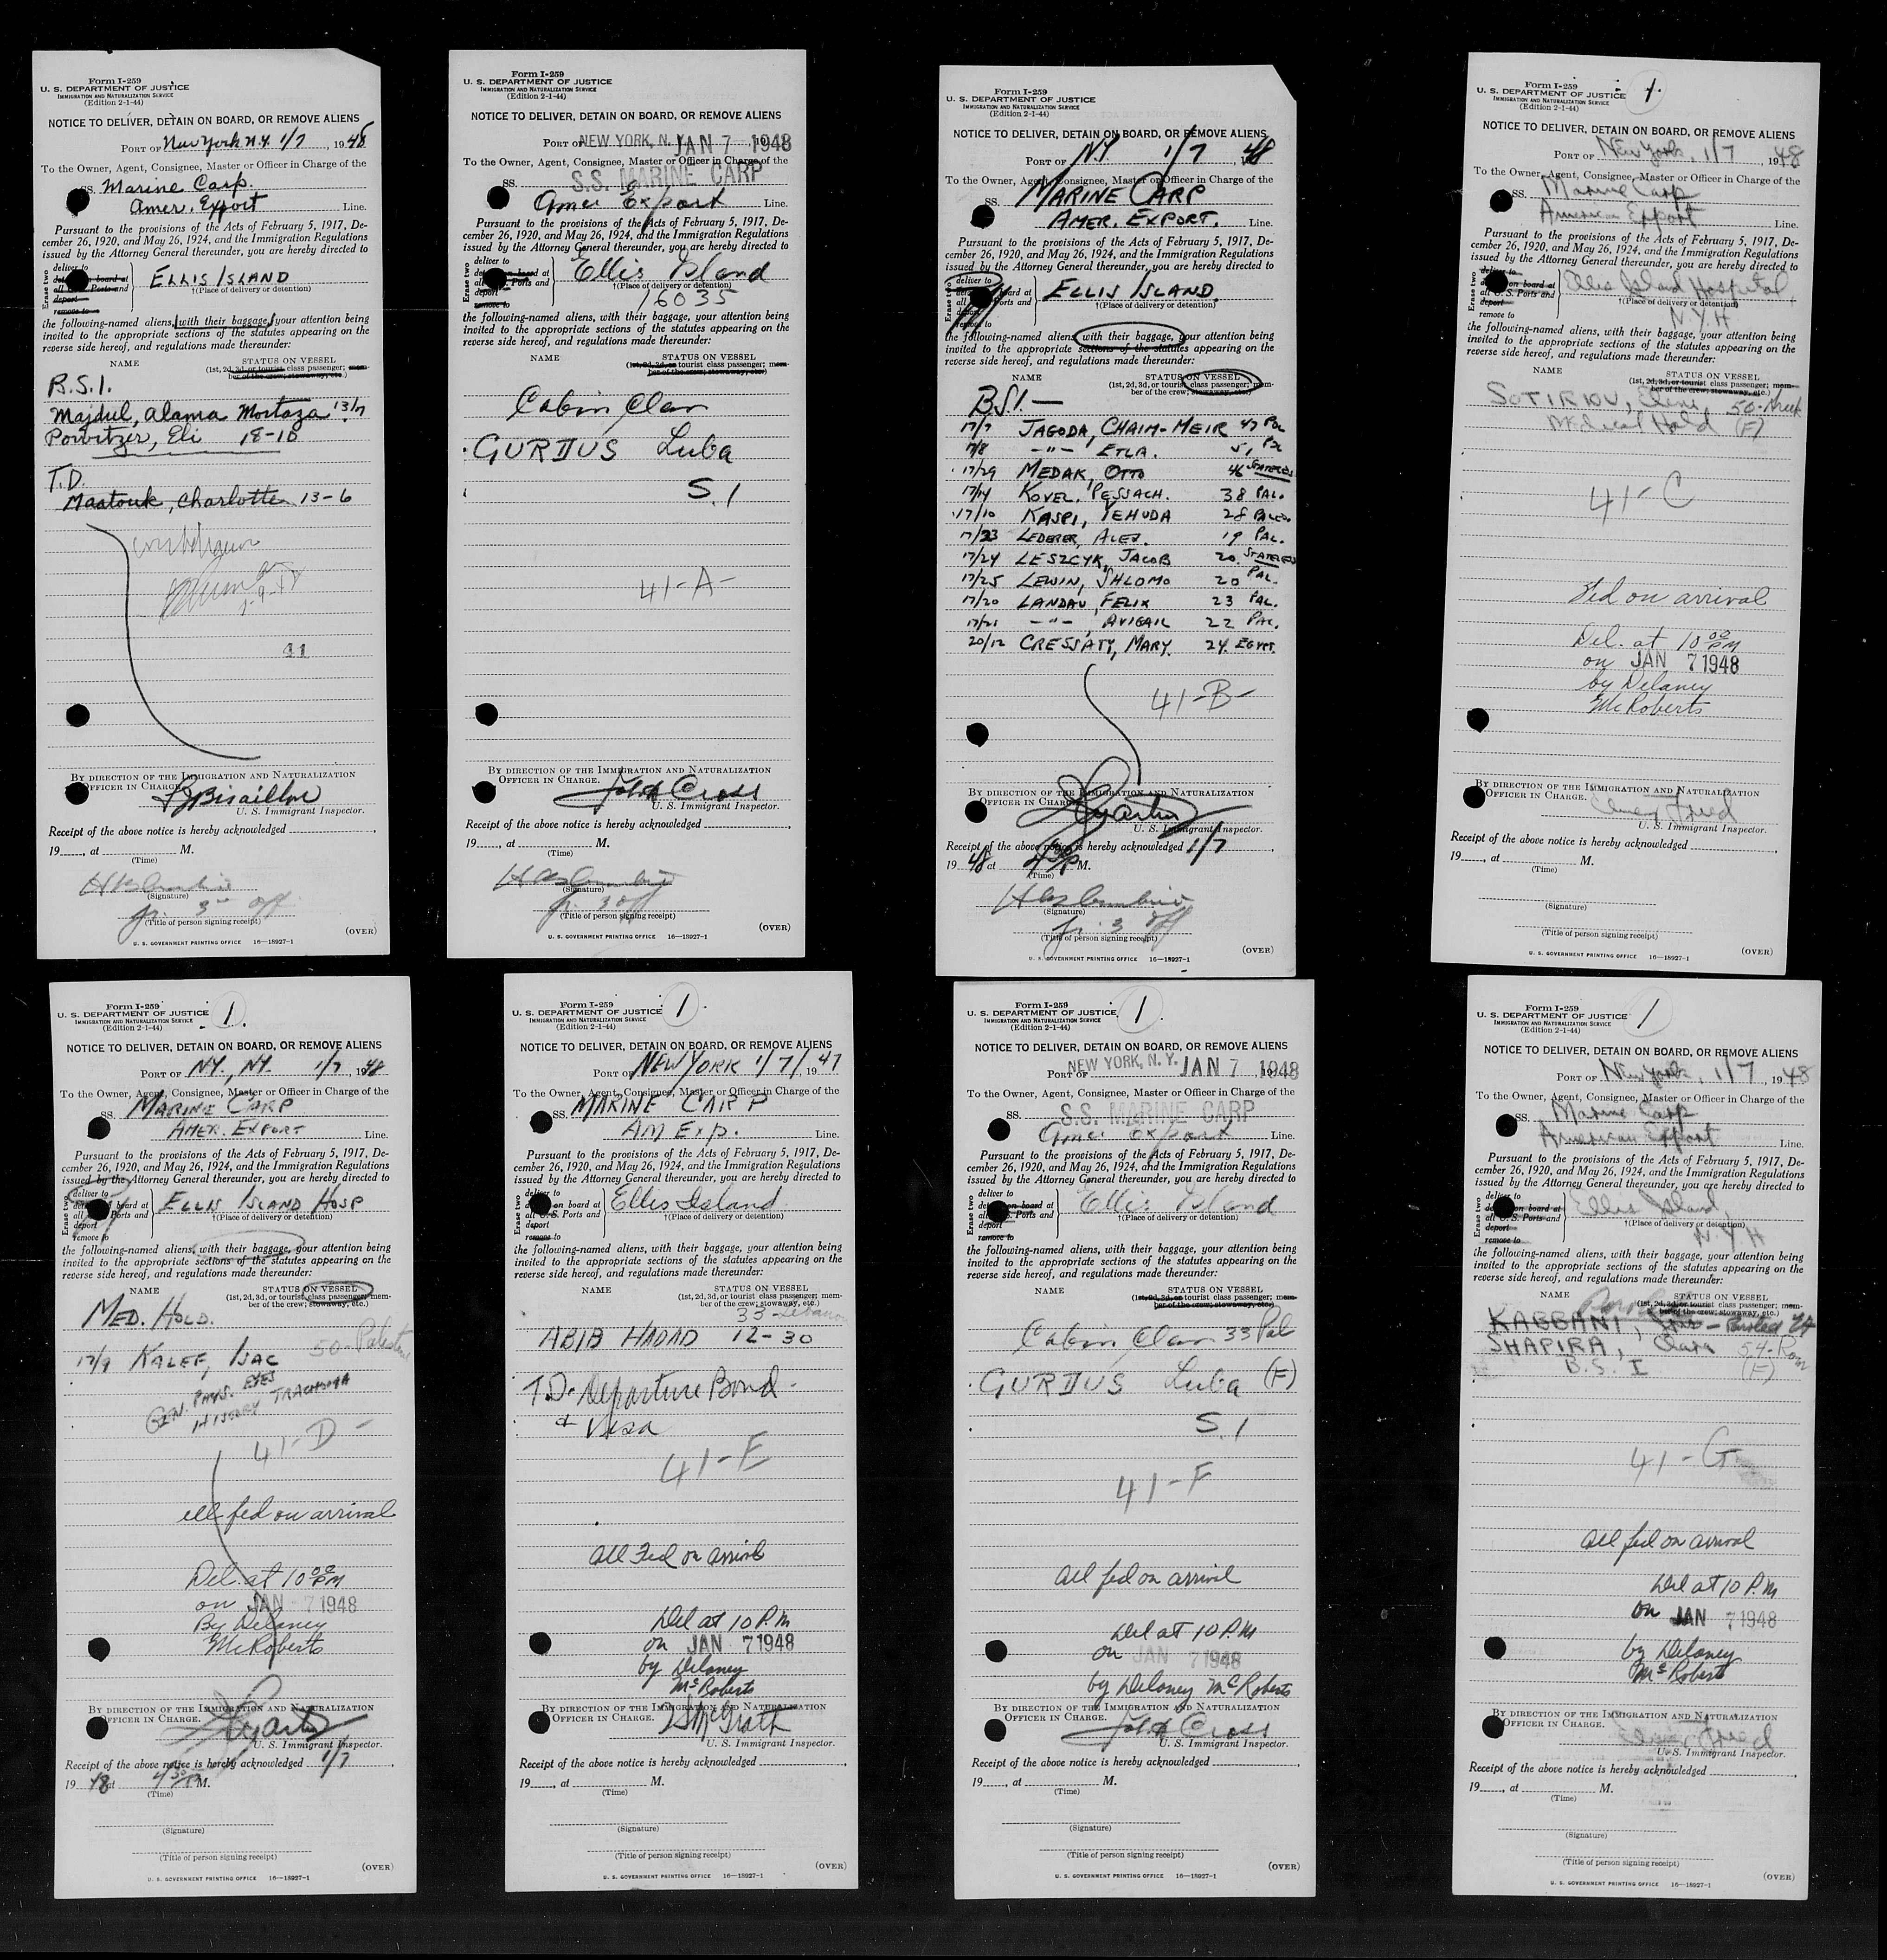 Form I-259
U. S. DEPARTMENT OF JUSTICE
IMMIGRATION AND NATURALIZATION SERVICE
(Edition 2-1-44)
NOTICE TO DELIVER, DETAIN ON BOARD, OR REMOVE ALIENS
PORT OF New York N.Y. 1/7, 1948
To the Owner, Agent, Consignee, Master or Officer in Charge of the
SS. Marine Carp.
Amer. Export Line.
Pursuant to the provisions of the Acts of February 5, 1917, De-
cember 26, 1920, and May 26, 1924, and the Immigration Regulations
issued by the Attorney General thereunder, you are hereby directed to
Erase two
deliver to
board at
all Ports and
deport
remove to
ELLIS ISLAND
†(Place of delivery or detention)
the following-named aliens, with their baggage, your attention being
invited to the appropriate sections of the statutes appearing on the
reverse side hereof, and regulations made thereunder:
NAME STATUS ON VESSEL
(1st, 2d, 3d, or tourist class passenger; mem-
ber of the crew; stowaway, etc.)
B.S.I.
Majdul, Alama Mortaza 13/7
Powitzer, Eli 18-10
T.D.
Maatouk, Charlotte 13-6
41
BY DIRECTION OF THE IMMIGRATION AND NATURALIZATION
OFFICER IN CHARGE.
U. S. Immigrant Inspector.
Receipt of the above notice is hereby acknowledged
19, at M.
(Time)
(Signature)
Jr. 3rd Off.
(Title of person signing receipt)
(OVER)
U. S. GOVERNMENT PRINTING OFFICE 16—18927-1
Form I-259
U. S. DEPARTMENT OF JUSTICE
IMMIGRATION AND NATURALIZATION SERVICE
(Edition 2-1-44)
NOTICE TO DELIVER, DETAIN ON BOARD, OR REMOVE ALIENS
PORT OF NEW YORK, N. JAN 7 1948
To the Owner, Agent, Consignee, Master or Officer in Charge of the
SS. S.S. MARINE CARP
Amer Export Line.
Pursuant to the provisions of the Acts of February 5, 1917, De-
cember 26, 1920, and May 26, 1924, and the Immigration Regulations
issued by the Attorney General thereunder, you are hereby directed to
Erase two
deliver to
on board at
all Ports and
deport
remove to
Ellis Island
†(Place of delivery or detention)
16035
the following-named aliens, with their baggage, your attention being
invited to the appropriate sections of the statutes appearing on the
reverse side hereof, and regulations made thereunder:
NAME STATUS ON VESSEL
(1st, 2d, 3d, or tourist class passenger; mem-
ber of the crew; stowaway, etc.)
Cabin Class
GURDUS Luba
S. I
41-A-
BY DIRECTION OF THE IMMIGRATION AND NATURALIZATION
OFFICER IN CHARGE.
John A Cross
U. S. Immigrant Inspector.
Receipt of the above notice is hereby acknowledged
19, at M.
(Time)
(Signature)
jr. 3 off
(Title of person signing receipt)
(OVER)
U. S. GOVERNMENT PRINTING OFFICE 16—18927-1
Form I-259
U. S. DEPARTMENT OF JUSTICE
IMMIGRATION AND NATURALIZATION SERVICE
(Edition 2-1-44)
NOTICE TO DELIVER, DETAIN ON BOARD, OR REMOVE ALIENS
PORT OF N.Y. 1/7 48
To the Owner, Agent, Consignee, Master or Officer in Charge of the
SS. MARINE CARP
AMER. EXPORT. Line.
Pursuant to the provisions of the Acts of February 5, 1917, De-
cember 26, 1920, and May 26, 1924, and the Immigration Regulations
issued by the Attorney General thereunder, you are hereby directed to
Erase two
deliver to
board at
all Ports and
remove to
ELLIS ISLAND.
†(Place of delivery or detention)
the following-named aliens, with their baggage, your attention being
invited to the appropriate sections of the statutes appearing on the
reverse side hereof, and regulations made thereunder:
NAME STATUS ON VESSEL
(1st, 2d, 3d, or tourist class passenger; mem-
ber of the crew; stowaway, etc.)
B.S.I. —
17/7 JAGODA, CHAIM-MEIR 47 PAL
17/8 -"- ETLA. 51 PAL
17/29 MEDAK, OTTO 46 STATELESS
17/14 KOVEL, PESSACH. 38 PAL.
17/10 KASPI, YEHUDA 28 PALES.
17/23 LEDERER, ALEX. 19 PAL.
17/24 LESZCYK, JACOB 20. STATELESS
17/25 LEWIN, SHLOMO 20 PAL.
17/20 LANDAU, FELIX 23 PAL.
17/21 -"- AVIGAIL 22 PAL.
20/12 CRESSATY, MARY. 24. EGYPT.
41-B-
BY DIRECTION OF THE IMMIGRATION AND NATURALIZATION
OFFICER IN CHARGE.
U. S. Immigrant Inspector.
Receipt of the above notice is hereby acknowledged 1/7
19 48 at 4 30 P M.
(Time)
(Signature)
jr. 3 off
(Title of person signing receipt)
(OVER)
U. S. GOVERNMENT PRINTING OFFICE 16—18927-1
Form I-259
1.
U. S. DEPARTMENT OF JUSTICE
IMMIGRATION AND NATURALIZATION SERVICE
(Edition 2-1-44)
NOTICE TO DELIVER, DETAIN ON BOARD, OR REMOVE ALIENS
PORT OF New York, 1/7, 1948
To the Owner, Agent, Consignee, Master or Officer in Charge of the
SS. Marine Carp
American Export Line.
Pursuant to the provisions of the Acts of February 5, 1917, De-
cember 26, 1920, and May 26, 1924, and the Immigration Regulations
issued by the Attorney General thereunder, you are hereby directed to
Erase two
deliver to
on board at
all U.S. Ports and
deport
remove to
Ellis Island Hospital,
†(Place of delivery or detention)
N.Y.H
the following-named aliens, with their baggage, your attention being
invited to the appropriate sections of the statutes appearing on the
reverse side hereof, and regulations made thereunder:
NAME STATUS ON VESSEL
(1st, 2d, 3d, or tourist class passenger; mem-
ber of the crew; stowaway, etc.)
SOTIRIOU, Eleni 50-Greek
Medical Hold (F)
41-C
Fed on arrival
Del. at 10 00 PM
on JAN 7 1948
by Delaney
McRoberts
BY DIRECTION OF THE IMMIGRATION AND NATURALIZATION
OFFICER IN CHARGE.
U. S. Immigrant Inspector.
Receipt of the above notice is hereby acknowledged
19, at M.
(Time)
(Signature)
(Title of person signing receipt)
(OVER)
U. S. GOVERNMENT PRINTING OFFICE 16—18927-1
Form I-259
1.
U. S. DEPARTMENT OF JUSTICE
IMMIGRATION AND NATURALIZATION SERVICE
(Edition 2-1-44)
NOTICE TO DELIVER, DETAIN ON BOARD, OR REMOVE ALIENS
PORT OF N.Y., N.Y. 1/7, 1948
To the Owner, Agent, Consignee, Master or Officer in Charge of the
SS. MARINE CARP
AMER. EXPORT Line.
Pursuant to the provisions of the Acts of February 5, 1917, De-
cember 26, 1920, and May 26, 1924, and the Immigration Regulations
issued by the Attorney General thereunder, you are hereby directed to
Erase two
deliver to
board at
all Ports and
deport
remove to
ELLIS ISLAND HOSP
†(Place of delivery or detention)
the following-named aliens, with their baggage, your attention being
invited to the appropriate sections of the statutes appearing on the
reverse side hereof, and regulations made thereunder:
NAME STATUS ON VESSEL
(1st, 2d, 3d, or tourist class passenger; mem-
ber of the crew; stowaway, etc.)
MED. HOLD.
17/9 KALEF, ISAC 50-Palestine
GEN. PHYS. EYES
HISTORY TRACHOMA
41-D-
all fed on arrival
Del. at 10 00 PM
on JAN 7 1948
By Delaney
McRoberts
BY DIRECTION OF THE IMMIGRATION AND NATURALIZATION
OFFICER IN CHARGE.
U. S. Immigrant Inspector.
Receipt of the above notice is hereby acknowledged 1/7
19 48 at 4 30 P M.
(Time)
(Signature)
(Title of person signing receipt)
(OVER)
U. S. GOVERNMENT PRINTING OFFICE 16—18927-1
Form I-259
1.
U. S. DEPARTMENT OF JUSTICE
IMMIGRATION AND NATURALIZATION SERVICE
(Edition 2-1-44)
NOTICE TO DELIVER, DETAIN ON BOARD, OR REMOVE ALIENS
PORT OF NEW YORK 1/7/, 1947
To the Owner, Agent, Consignee, Master or Officer in Charge of the
SS. MARINE CARP
AM EXP. Line.
Pursuant to the provisions of the Acts of February 5, 1917, De-
cember 26, 1920, and May 26, 1924, and the Immigration Regulations
issued by the Attorney General thereunder, you are hereby directed to
Erase two
deliver to
on board at
all U.S. Ports and
deport
remove to
Ellis Island
†(Place of delivery or detention)
the following-named aliens, with their baggage, your attention being
invited to the appropriate sections of the statutes appearing on the
reverse side hereof, and regulations made thereunder:
NAME STATUS ON VESSEL
(1st, 2d, 3d, or tourist class passenger; mem-
ber of the crew; stowaway, etc.)
33-Lebanon
ABIB HADAD 12-30
T.D. Departure Bond.
+ Visa
41-E
all Fed on arrival
Del at 10 P.M
on JAN 7 1948
by Delaney
McRoberts
BY DIRECTION OF THE IMMIGRATION AND NATURALIZATION
OFFICER IN CHARGE.
McGrath
U. S. Immigrant Inspector.
Receipt of the above notice is hereby acknowledged
19, at M.
(Time)
(Signature)
(Title of person signing receipt)
(OVER)
U. S. GOVERNMENT PRINTING OFFICE 16—18927-1
Form I-259
1.
U. S. DEPARTMENT OF JUSTICE
IMMIGRATION AND NATURALIZATION SERVICE
(Edition 2-1-44)
NOTICE TO DELIVER, DETAIN ON BOARD, OR REMOVE ALIENS
PORT OF NEW YORK, N. Y. JAN 7 1948
To the Owner, Agent, Consignee, Master or Officer in Charge of the
SS. S.S. MARINE CARP
Amer Export Line.
Pursuant to the provisions of the Acts of February 5, 1917, De-
cember 26, 1920, and May 26, 1924, and the Immigration Regulations
issued by the Attorney General thereunder, you are hereby directed to
Erase two
deliver to
on board at
all U.S. Ports and
deport
remove to
Ellis Island
†(Place of delivery or detention)
the following-named aliens, with their baggage, your attention being
invited to the appropriate sections of the statutes appearing on the
reverse side hereof, and regulations made thereunder:
NAME STATUS ON VESSEL
(1st, 2d, 3d, or tourist class passenger; mem-
ber of the crew; stowaway, etc.)
Cabin Class 33 Pal
GURDUS Luba (F)
S. I
41-F
all fed on arrival
Del at 10 P.M
on JAN 7 1948
by Delaney McRoberts
BY DIRECTION OF THE IMMIGRATION AND NATURALIZATION
OFFICER IN CHARGE.
John A Cross
U. S. Immigrant Inspector.
Receipt of the above notice is hereby acknowledged
19, at M.
(Time)
(Signature)
(Title of person signing receipt)
(OVER)
U. S. GOVERNMENT PRINTING OFFICE 16—18927-1
Form I-259
1
U. S. DEPARTMENT OF JUSTICE
IMMIGRATION AND NATURALIZATION SERVICE
(Edition 2-1-44)
NOTICE TO DELIVER, DETAIN ON BOARD, OR REMOVE ALIENS
PORT OF New York, 1/7, 1948
To the Owner, Agent, Consignee, Master or Officer in Charge of the
SS. Marine Carp
American Export Line.
Pursuant to the provisions of the Acts of February 5, 1917, De-
cember 26, 1920, and May 26, 1924, and the Immigration Regulations
issued by the Attorney General thereunder, you are hereby directed to
Erase two
deliver to
on board at
all U.S. Ports and
deport
remove to
Ellis Island,
†(Place of delivery or detention)
N.Y.H
the following-named aliens, with their baggage, your attention being
invited to the appropriate sections of the statutes appearing on the
reverse side hereof, and regulations made thereunder:
NAME STATUS ON VESSEL
(1st, 2d, 3d, or tourist class passenger; mem-
ber of the crew; stowaway, etc.)
KABBANI, Paroled
SHAPIRA, Clara 54-Rom
B.S.I (F)
41-G
all fed on arrival
Del at 10 P.M
on JAN 7 1948
by Delaney
McRoberts
BY DIRECTION OF THE IMMIGRATION AND NATURALIZATION
OFFICER IN CHARGE.
U. S. Immigrant Inspector.
Receipt of the above notice is hereby acknowledged
19, at M.
(Time)
(Signature)
(Title of person signing receipt)
(OVER)
U. S. GOVERNMENT PRINTING OFFICE 16—18927-1